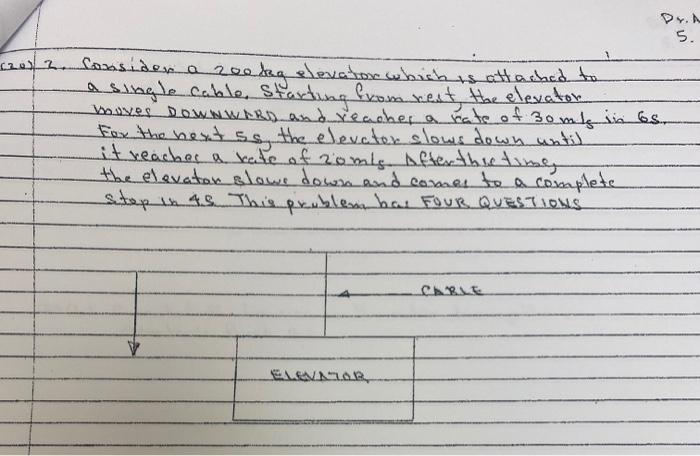 Dr. A
5.
(20) 2. Consider a 200 kg elevator which is attached to
a single cable. Starting from rest, the elevator
moves DOWNWARD and reaches a rate of 30 m/s in 6s.
For the next 5s, the elevator slows down until
it reaches a rate of 20 m/s. After this time,
the elevator slows down and comes to a complete
stop in 4s. This problem has FOUR QUESTIONS
CABLE
ELEVATOR